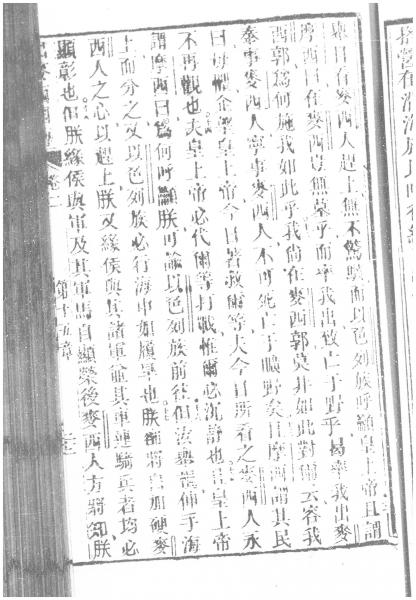 舉目看麥西人趕上無不驚駭而以色列族呼籲皇上帝且謂
摩西曰在麥西豈無墓乎而率我出致亡于野乎曷率我出麥
西郭爲何施我如此乎我尚在麥西郭莫非如此對爾云容我
奉事麥西人寧事麥西人不可死亡于曠野矣且摩西謂其民
曰毋懼企擎皇上帝今日著救爾等夫今日所看之麥西人永
不再觀也夫皇上帝必代爾等打戰惟爾必沉靜也且皇上帝
謂摩西曰爲何呼籲朕可諭以色列族前往但汝舉棍伸手海
上而分之又以色列族必行海中如履旱也朕卻將自加硬麥
西人之心以趕上朕又緣侯與其諸軍並其車連騎兵者均必
顯彰也但朕緣侯與軍及其軍馬自顯榮後麥西人方將知朕
卷二 第十五章